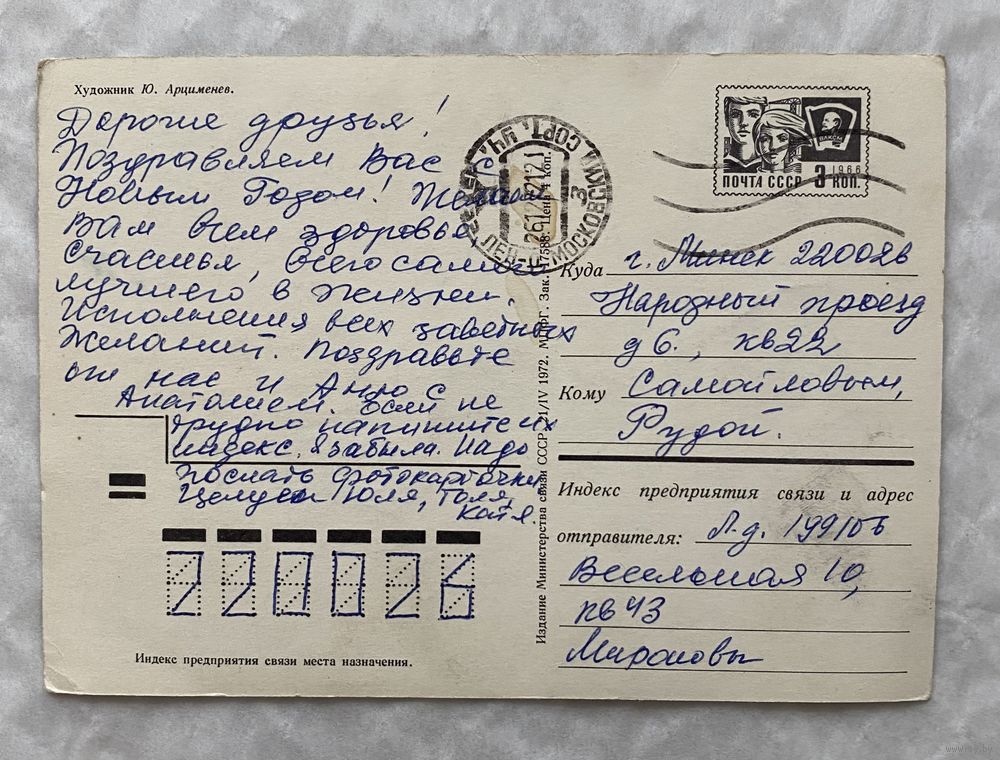 Художник Ю. Арцименев.
Дорогие друзья!
Поздравляем Вас с
Новым Годом! Желаем
Вам всем здоровья,
счастья, всего самого
лучшего в жизни.
Исполнения всех заветных
желаний. Поздравьте
от нас и Аню с
Анатолием. Если не
трудно напишите их
индекс. Я забыла. Надо
послать фотокарточки
Целуем Юля, Толя,
Катя.
Индекс предприятия связи места назначения.
220026
ПОЧТА СССР 3 КОП.
1966
ВЛКСМ
МОСКОВСКИЙ СОРТ.
Издание Министерства связи СССР. 21/IV 1972. МПФГ. Зак. 17588. Цена 4 коп.
Куда г. Минск 220026
Народный проезд
д 6., кв 22
Кому Самойловым,
Рудой.
Индекс предприятия связи и адрес
отправителя: Л-д. 199106
Весельная 10,
кв 43
www.ay.by